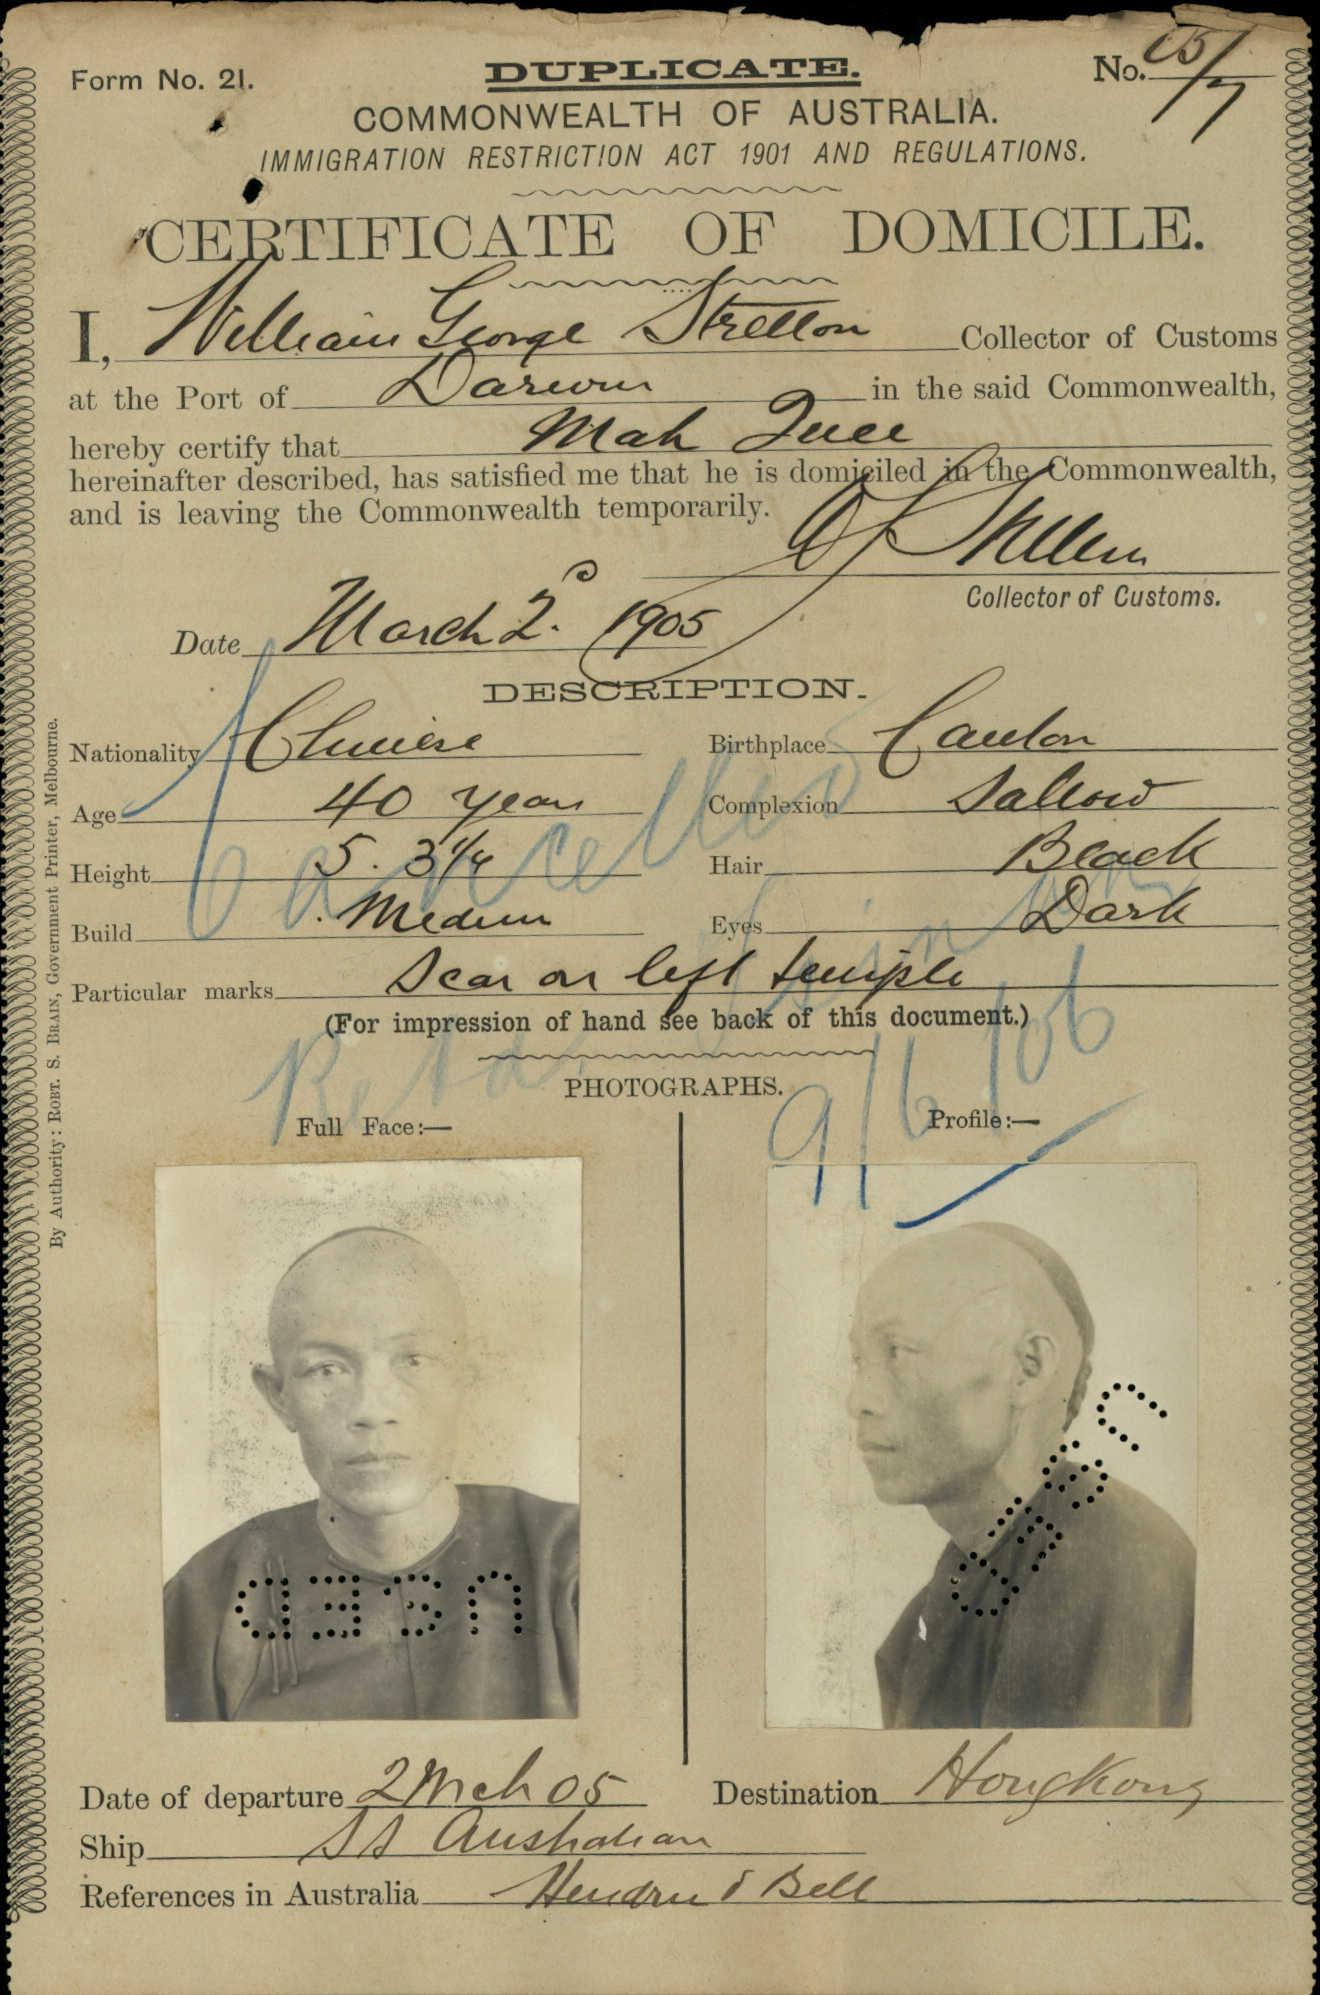 Form No. 21.
DUPLICATE.
No. 05/7
COMMONWEALTH OF AUSTRALIA.
IMMIGRATION RESTRICTION ACT 1901 AND REGULATIONS.
CERTIFICATE OF DOMICILE.
I, William George Stretton Collector of Customs
at the Port of Darwin in the said Commonwealth,
hereby certify that Mah Quee
hereinafter described, has satisfied me that he is domiciled in the Commonwealth,
and is leaving the Commonwealth temporarily.
Collector of Customs.
Date March 2d. 1905
DESCRIPTION.
Nationality Chinese
Birthplace Canton
Age 40 years
Complexion Sallow
Height 5. 3 1/4
Hair Black
Build Medium
Eyes Dark
Particular marks Scar on left temple
(For impression of hand see back of this document.)
Cancelled
9/6/06
PHOTOGRAPHS.
Full Face:—
Profile:—
USED
Date of departure 2 Mch 05
Destination HongKong
Ship SS Australian
References in Australia Hendry & Bell
By Authority: ROBT. S. BRAIN, Government Printer, Melbourne.